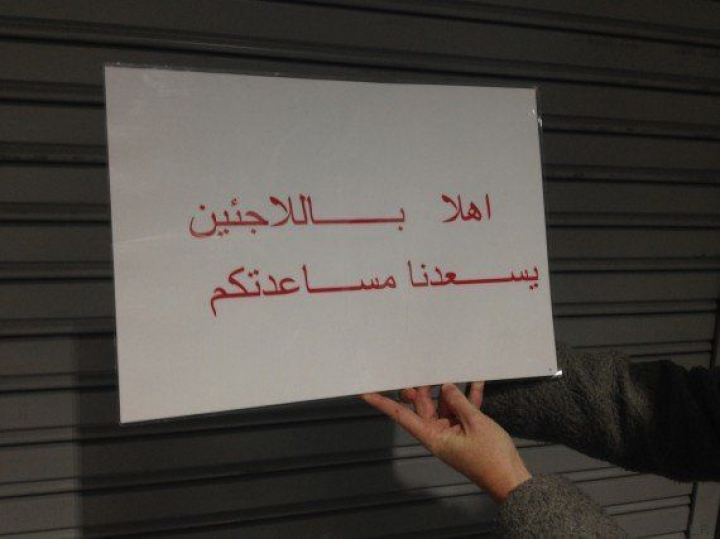 اهلا بـــاللاجئين
يســـعدنا مســـاعدتكم